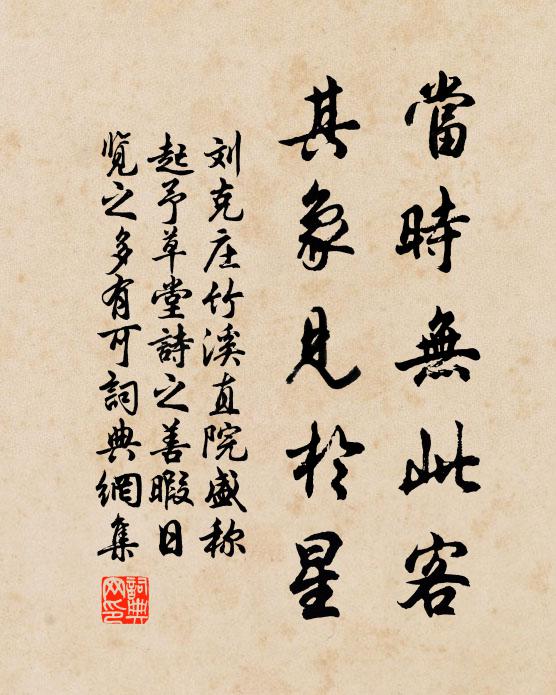 當時無此客
其象見於星
刘克庄竹溪直院盛称
起予草堂詩之善暇日
览之多有可詞典網集
詞典网印